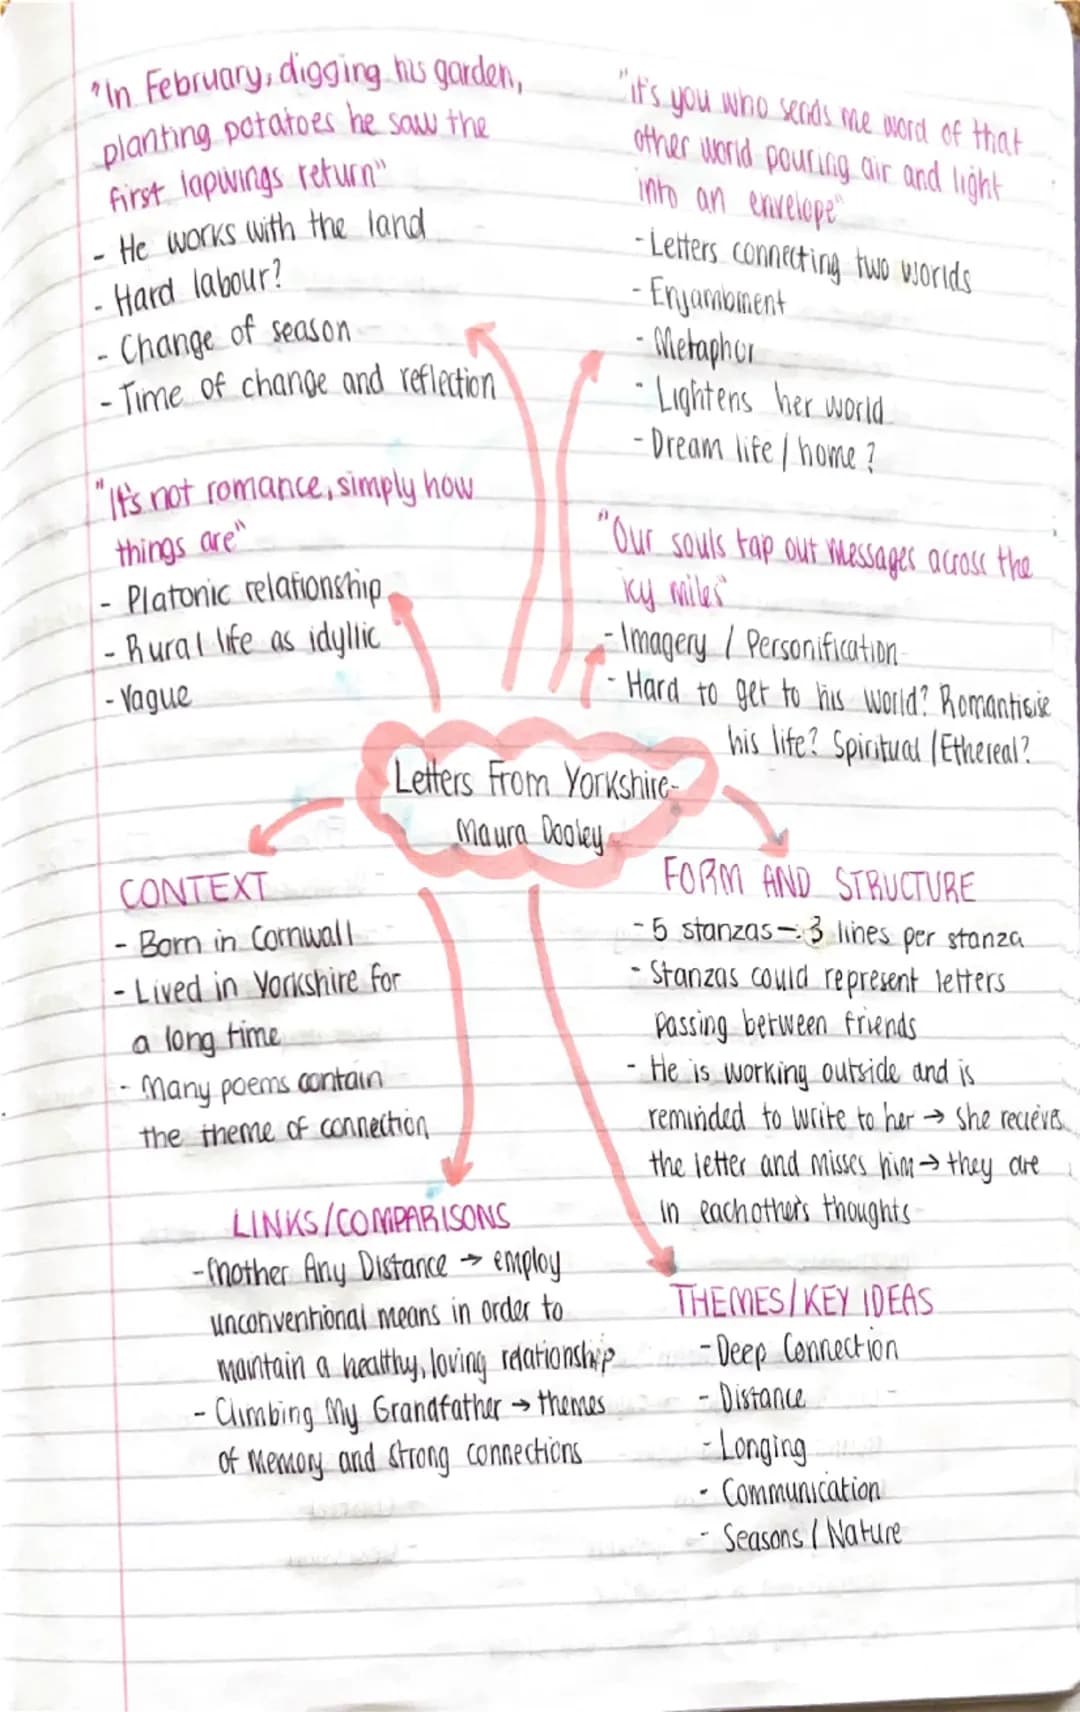 "In February, digging his garden,
planting potatoes he saw the
first lapwings return"
- He works with the land
- Hard labour?
- Change of season
- Time of change and reflection
"it's you who sends me word of that
other world pouring air and light
into an envelope"
- Letters connecting two worlds
- Enjambment
- Metaphor
- Lightens her world
- Dream life / home?
"It's not romance, simply how
things are"
- Platonic relationship
- Rural life as idyllic
- Vague
"Our souls tap out messages across the
icy miles"
- Imagery / Personification
- Hard to get to his world? Romanticise
his life? Spiritual / Ethereal?
Letters From Yorkshire-
Maura Dooley
CONTEXT
- Born in Cornwall
- Lived in Yorkshire for
a long time
- Many poems contain
the theme of connection
FORM AND STRUCTURE
- 5 stanzas - 3 lines per stanza
- Stanzas could represent letters
passing between friends
- He is working outside and is
reminded to write to her → She recieves
the letter and misses him → they are
in eachother's thoughts
LINKS/COMPARISONS
- Mother Any Distance → employ
unconventional means in order to
maintain a healthy, loving relationship
- Climbing My Grandfather → themes
of Memory and strong connections
THEMES/KEY IDEAS
- Deep Connection
- Distance
- Longing
- Communication
- Seasons / Nature